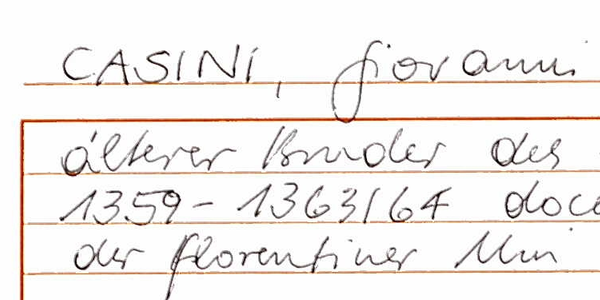 CASINI, Giovanni
älterer Bruder des
1359-1363/64 doce
der florentiner Uni